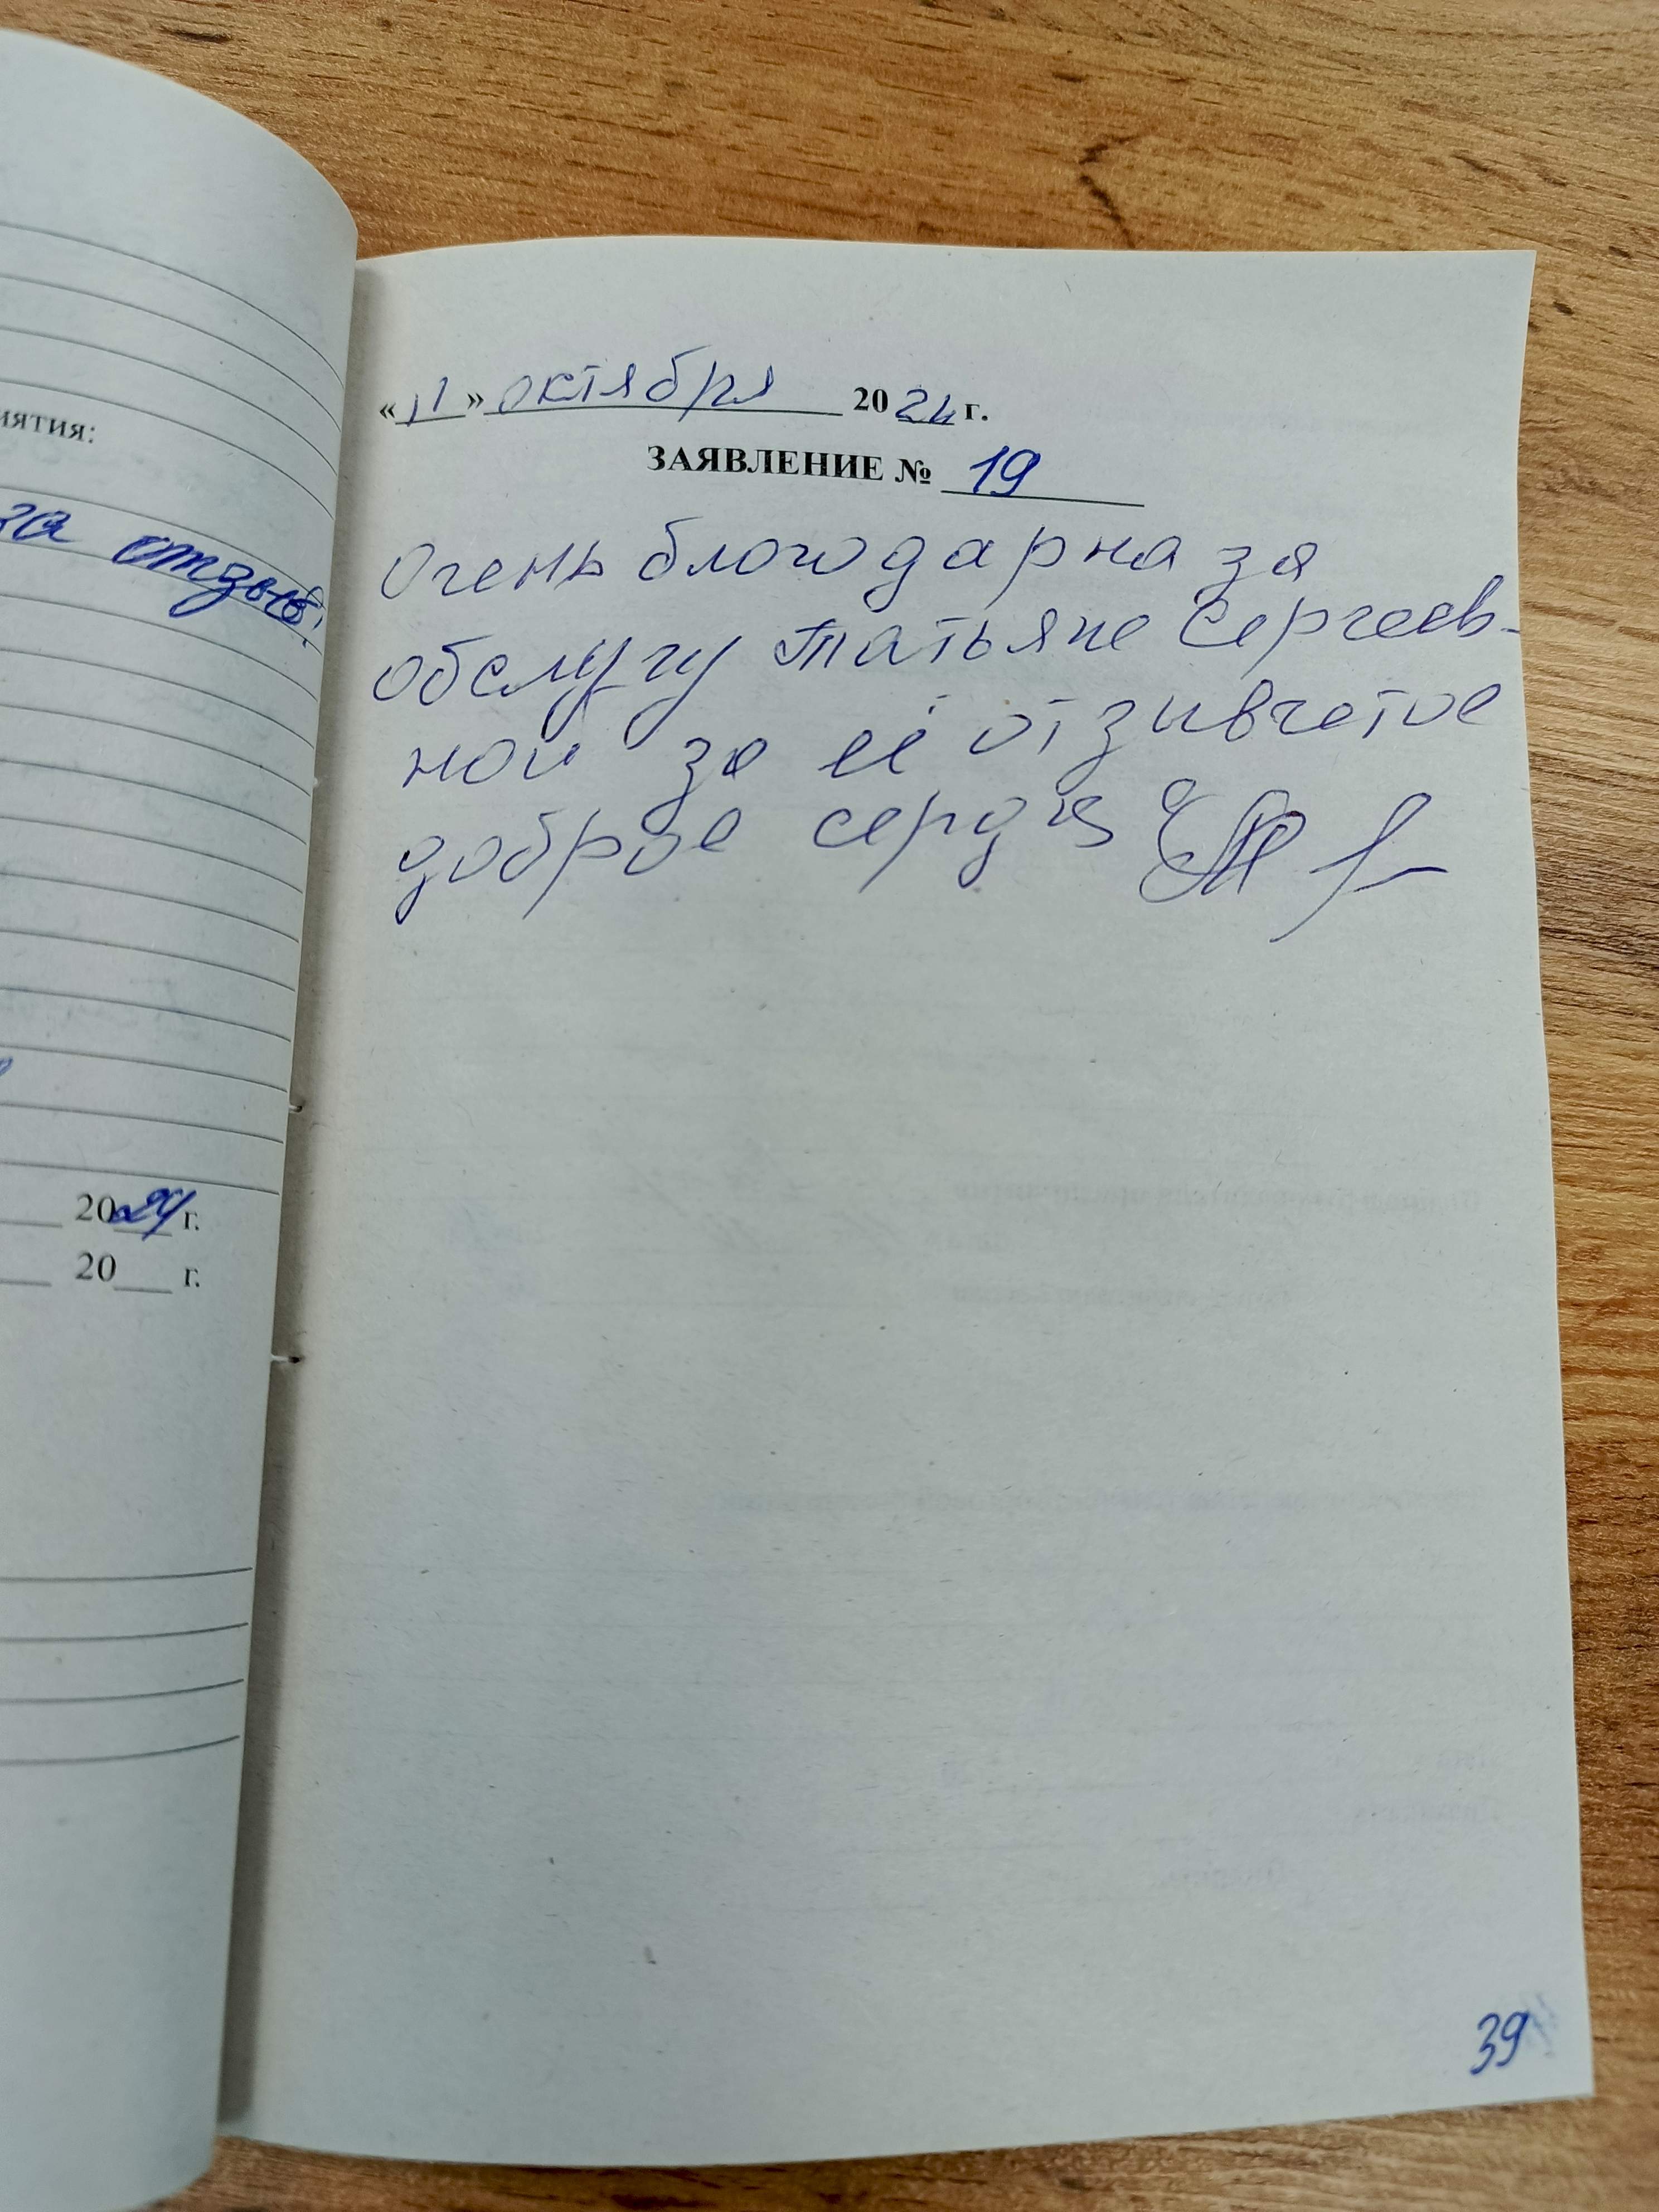 иятия:
за отзыв!
2024 г.
20___ г.
«11» октября 2024 г.
ЗАЯВЛЕНИЕ № 19
Очень благодарна за
обслугу Татьяне Сергеев-
ной за её отзивчетое
доброе серця
39